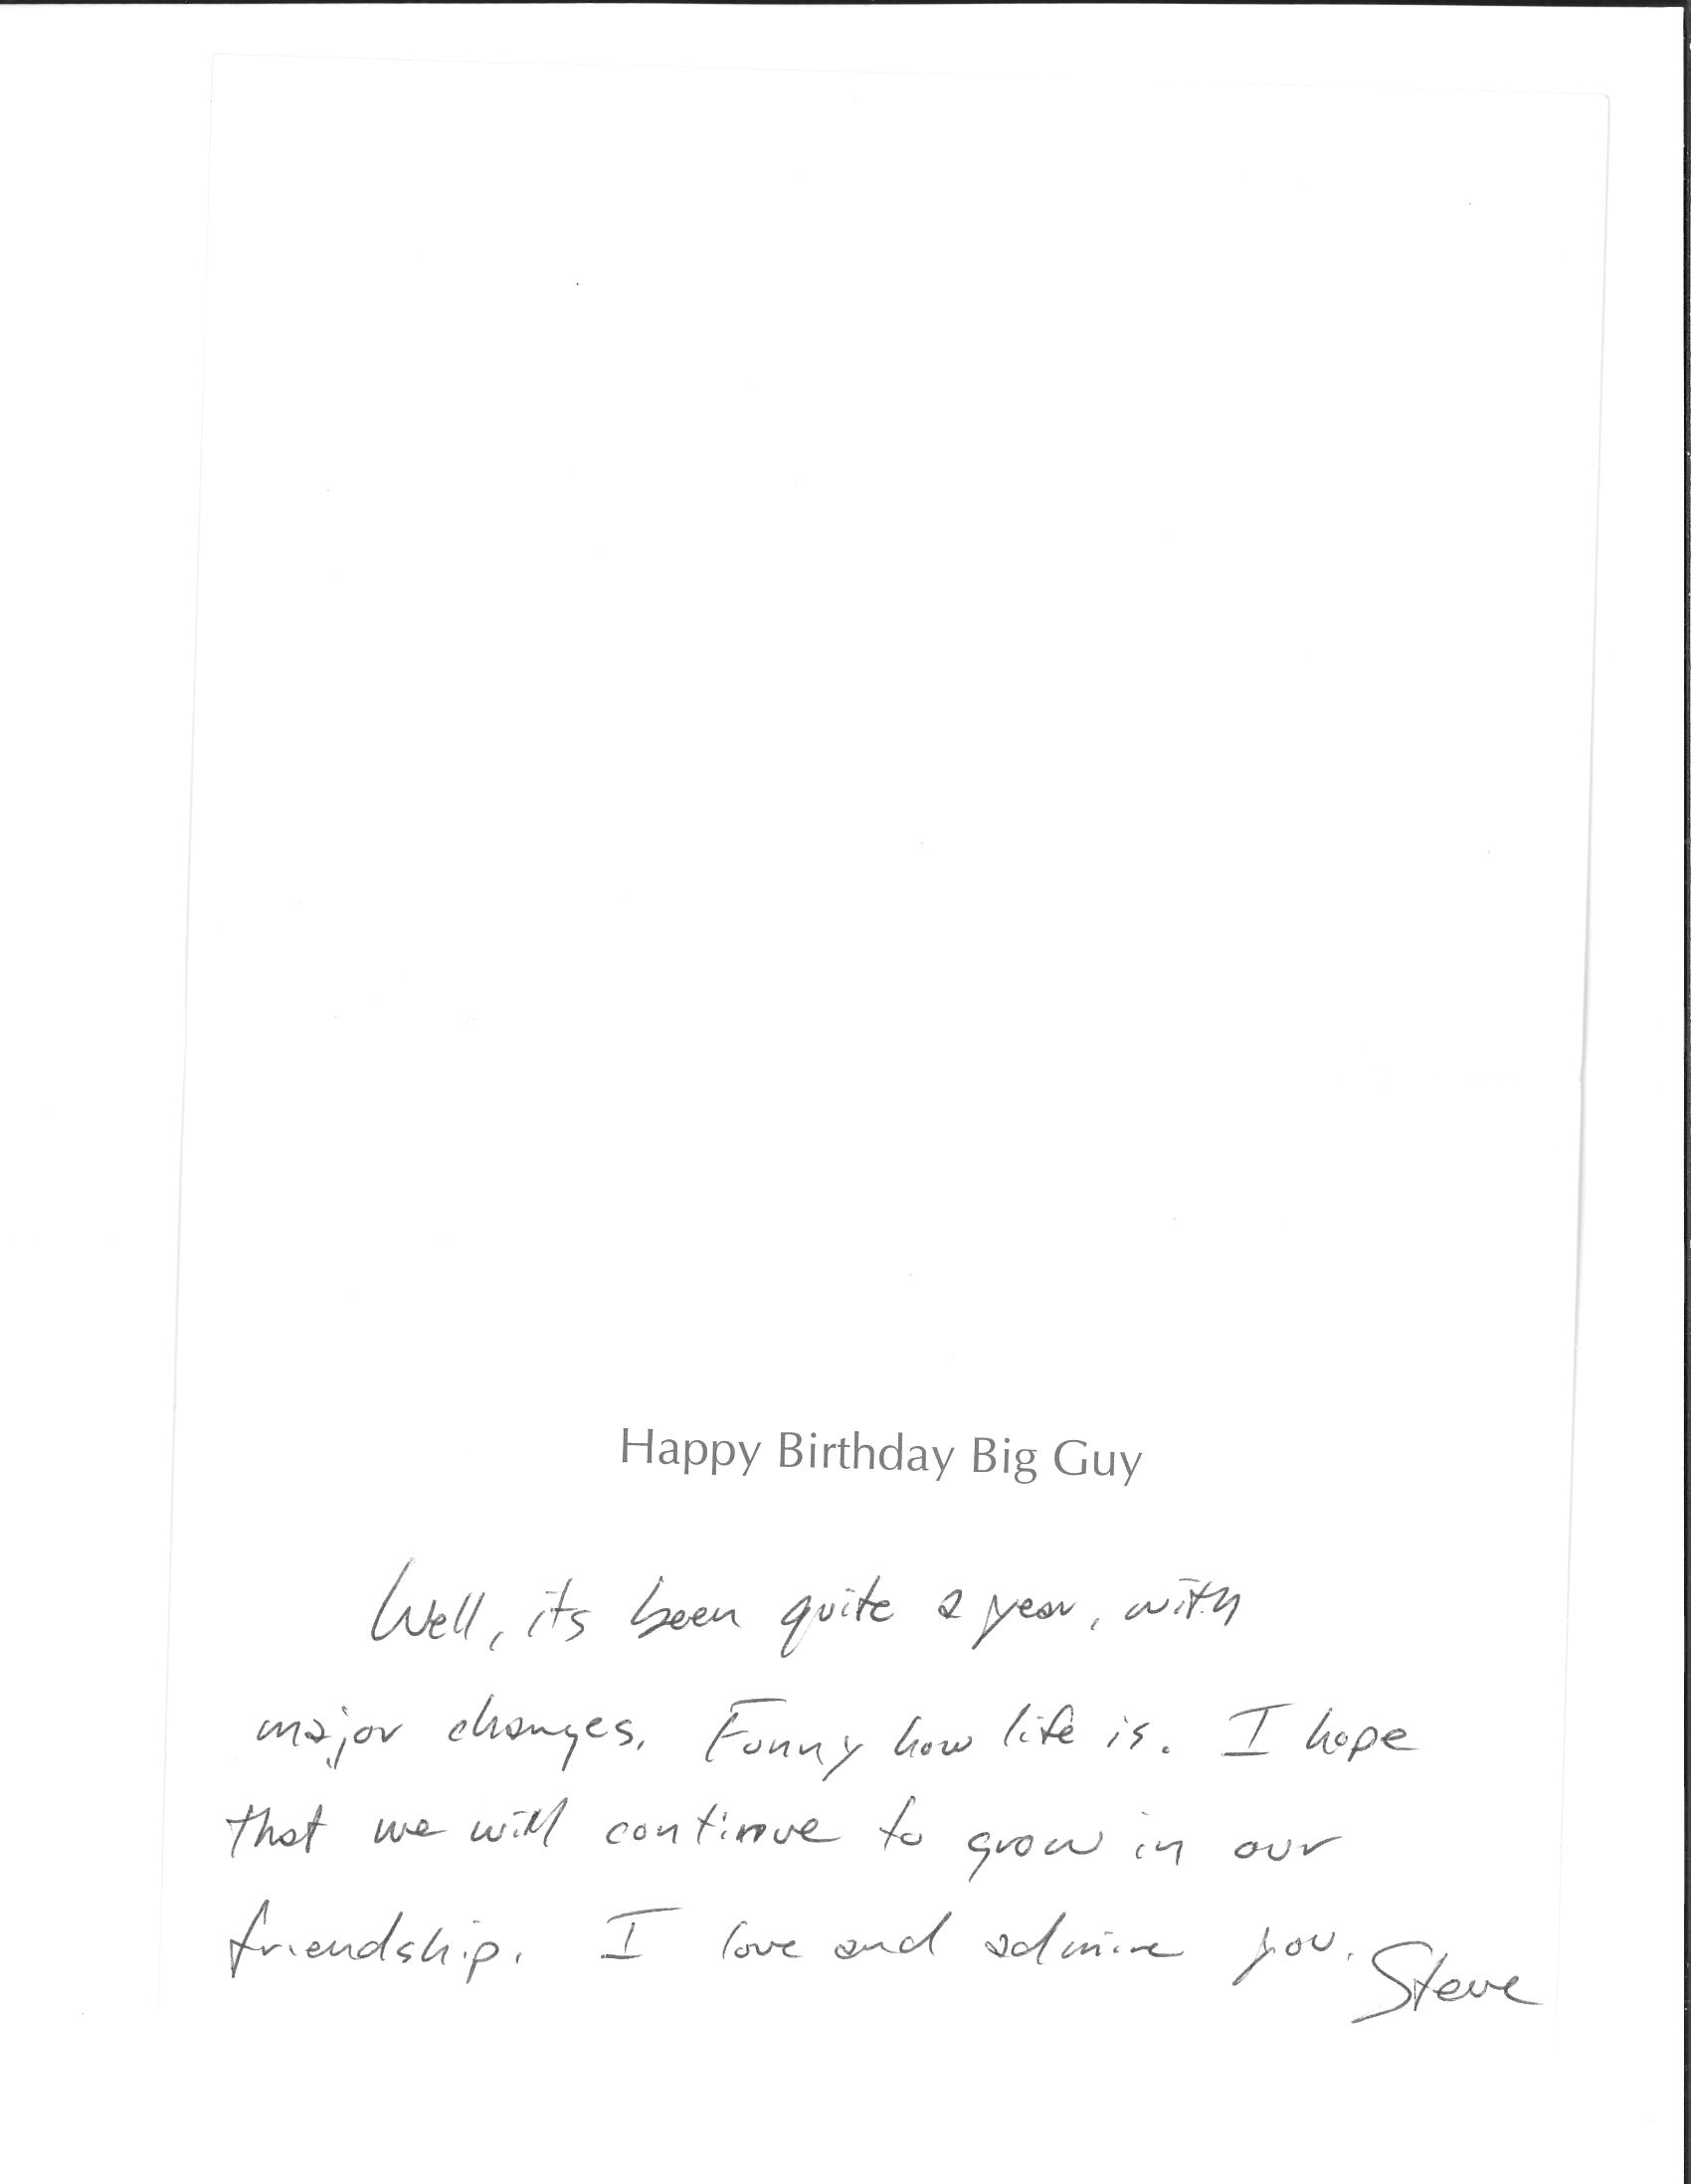 Happy Birthday Big Guy
Well, its been quite a year, with
major changes. Funny how life is. I hope
that we will continue to grow in our
friendship. I love and admire you.
Steve